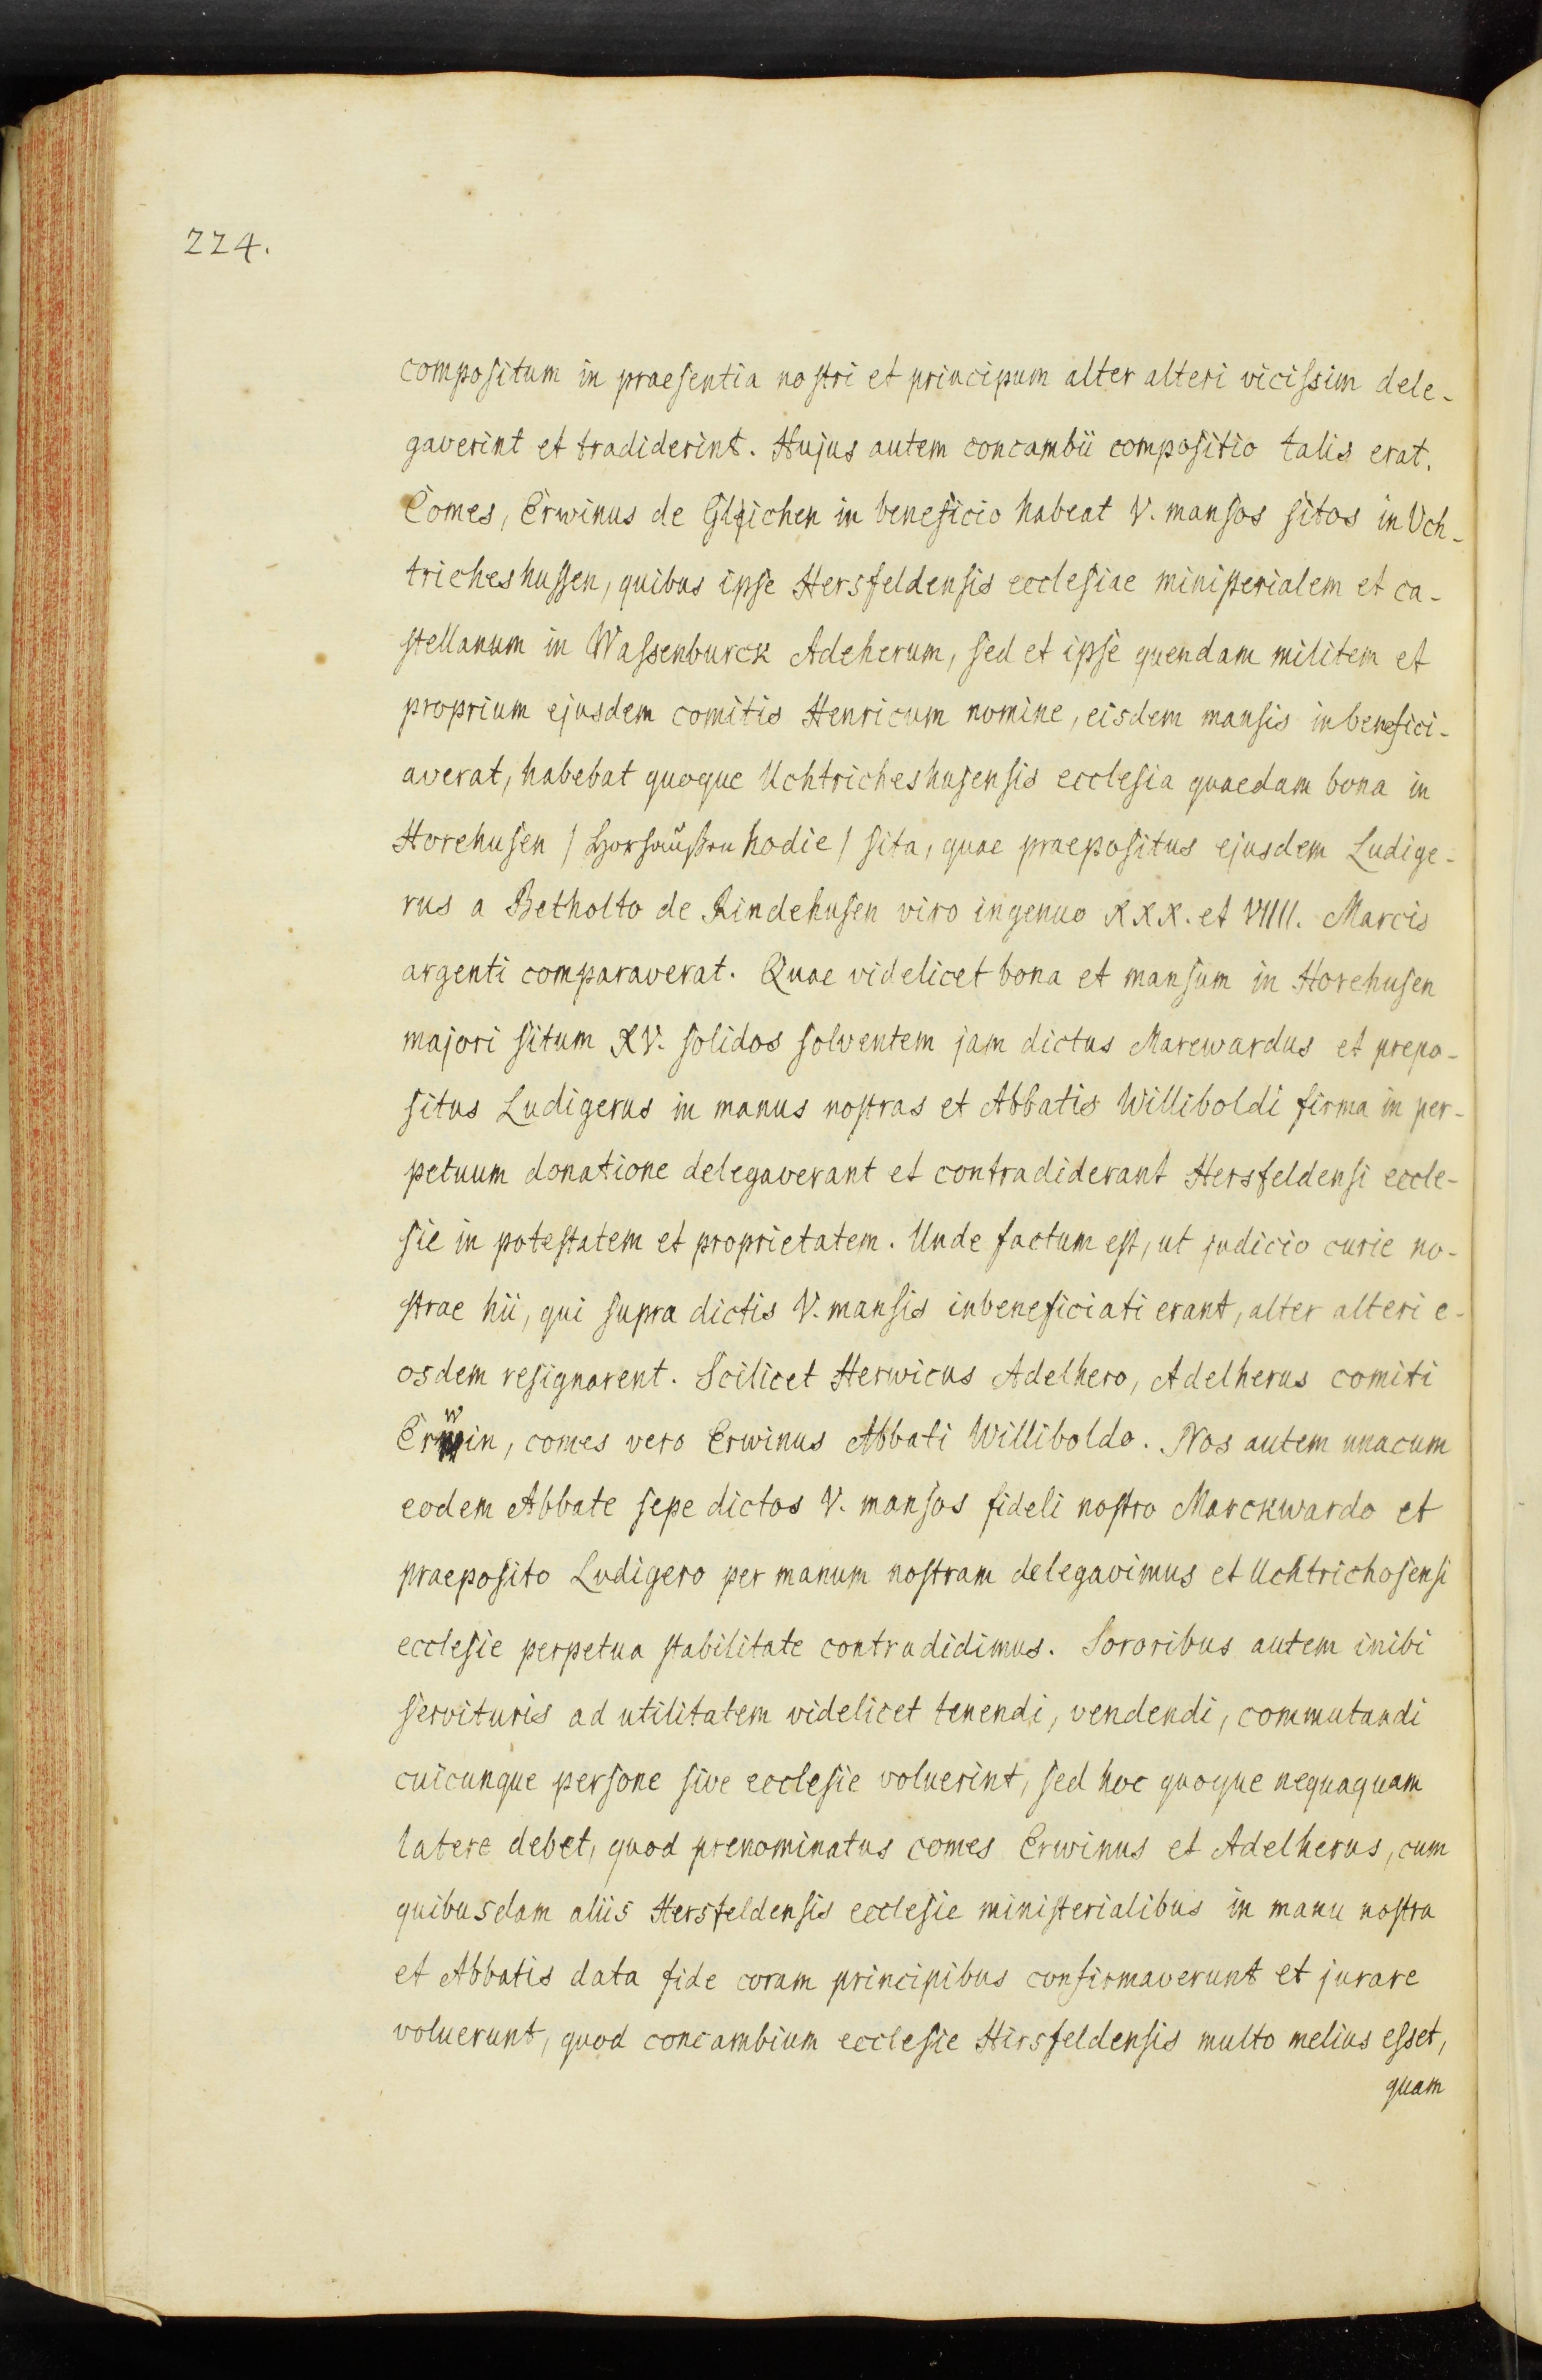 224.
compositum in praesentia nostri et principum alter alteri vicissim dele-
gaverint et tradiderint. Hujus autem concambii compositio talis erat.
Comes, Erwinus de Gleichen in beneficio habeat V. mansos sitos in Uch-
tricheshussen, quibus ipse Hersfeldensis ecclesiae ministerialem et ca-
stellanum in Wassenburck Adeherum, sed et ipse quendam militem et
proprium ejusdem comitis Henricum nomine, eisdem mansis inbenefici-
averat, habebat quoque Uchtricheshusensis ecclesia quaedam bona in
Horehusen / Horhaußen hodie / sita, quae praepositus ejusdem Ludige-
rus a Betholto de Rindehusen viro ingenuo XXX. et VIIII. Marcis
argenti comparaverat. Quae videlicet bona et mansum in Horehusen
majori situm XV. solidos solventem jam dictus Marewardus et prepo-
situs Ludigerus in manus nostras et Abbatis Williboldi firma in per-
petuum donatione delegaverant et contradiderant Hersfeldensi eccle-
sie in potestatem et proprietatem. Unde factum est, ut judicio curie no-
strae hii, qui supra dictis V. mansis inbeneficiati erant, alter alteri e-
osdem resignarent. Scilicet Herwicus Adelhero, Adelherus comiti
Erwin, comes vero Erwinus Abbati Williboldo. Nos autem unacum
eodem Abbate sepe dictos V. mansos fideli nostro Marckwardo et
praeposito Ludigero per manum nostram delegavimus et Uchtrichosensi
ecclesie perpetua stabilitate contradidimus. Sororibus autem inibi
servituris ad utilitatem videlicet tenendi, vendendi, commutandi
cuicunque persone sive ecclesie voluerint, sed hoc quoque nequaquam
latere debet, quod prenominatus comes Erwinus et Adelherus, cum
quibusdam aliis Hersfeldensis ecclesie ministerialibus in manu nostra
et Abbatis data fide coram principibus confirmaverunt et jurare
voluerunt, quod concambium ecclesie Hirsfeldensis multo melius esset,
quam